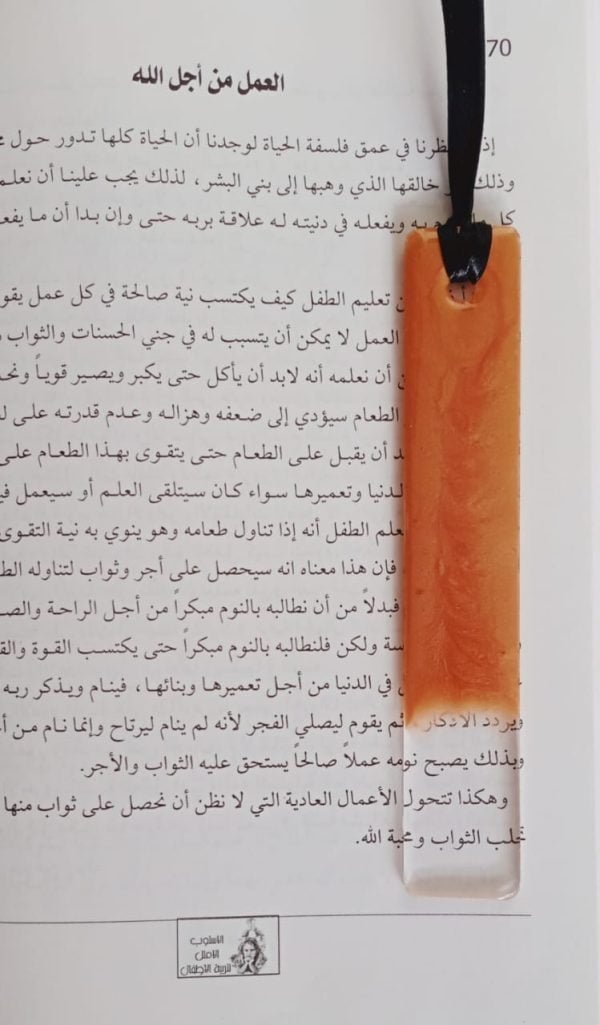 70
العمل من أجل الله
إذ نظرنا في عمق فلسفة الحياة لوجدنا أن الحياة كلها تدور حول
وذلك خالقها الذي وهبها إلى بني البشر، لذلك يجب علينا أن نعلم
كل به ويفعله في دنيته له علاقة بربه حتى وإن بدا أن ما يفعـ
تعليم الطفل كيف يكتسب نية صالحة في كل عمل يقو
العمل لا يمكن أن يتسبب له في جني الحسنات والثواب
أن نعلمه أنه لابد أن يأكل حتى يكبر ويصير قوياً ونحـ
الطعام سيؤدي إلى ضعفه وهزاله وعدم قدرته على
أن يقبل على الطعام حتى يتقوى بهذا الطعام على
لدنيا وتعميرها سواء كان سيتلقى العلم أو سيعمل فيـ
علم الطفل أنه إذا تناول طعامه وهو ينوي به نية التقوى
فإن هذا معناه انه سيحصل على أجر وثواب لتناوله الطـ
فبدلاً من أن نطالبه بالنوم مبكراً من أجل الراحة والصـ
سة ولكن فلنطالبه بالنوم مبكراً حتى يكتسب القوة والقـ
في الدنيا من أجل تعميرها وبنائها، فينام ويذكر ربه
ويردد الأذكار، ثم يقوم ليصلي الفجر لأنه لم ينام ليرتاح وإنما نام من أ
وبذلك يصبح نومه عملاً صالحاً يستحق عليه الثواب والأجر.
وهكذا تتحول الأعمال العادية التي لا نظن أن نحصل على ثواب منها
تجلب الثواب ومحبة الله.
الأسلوب
الأمثل
لتربية الأطفال